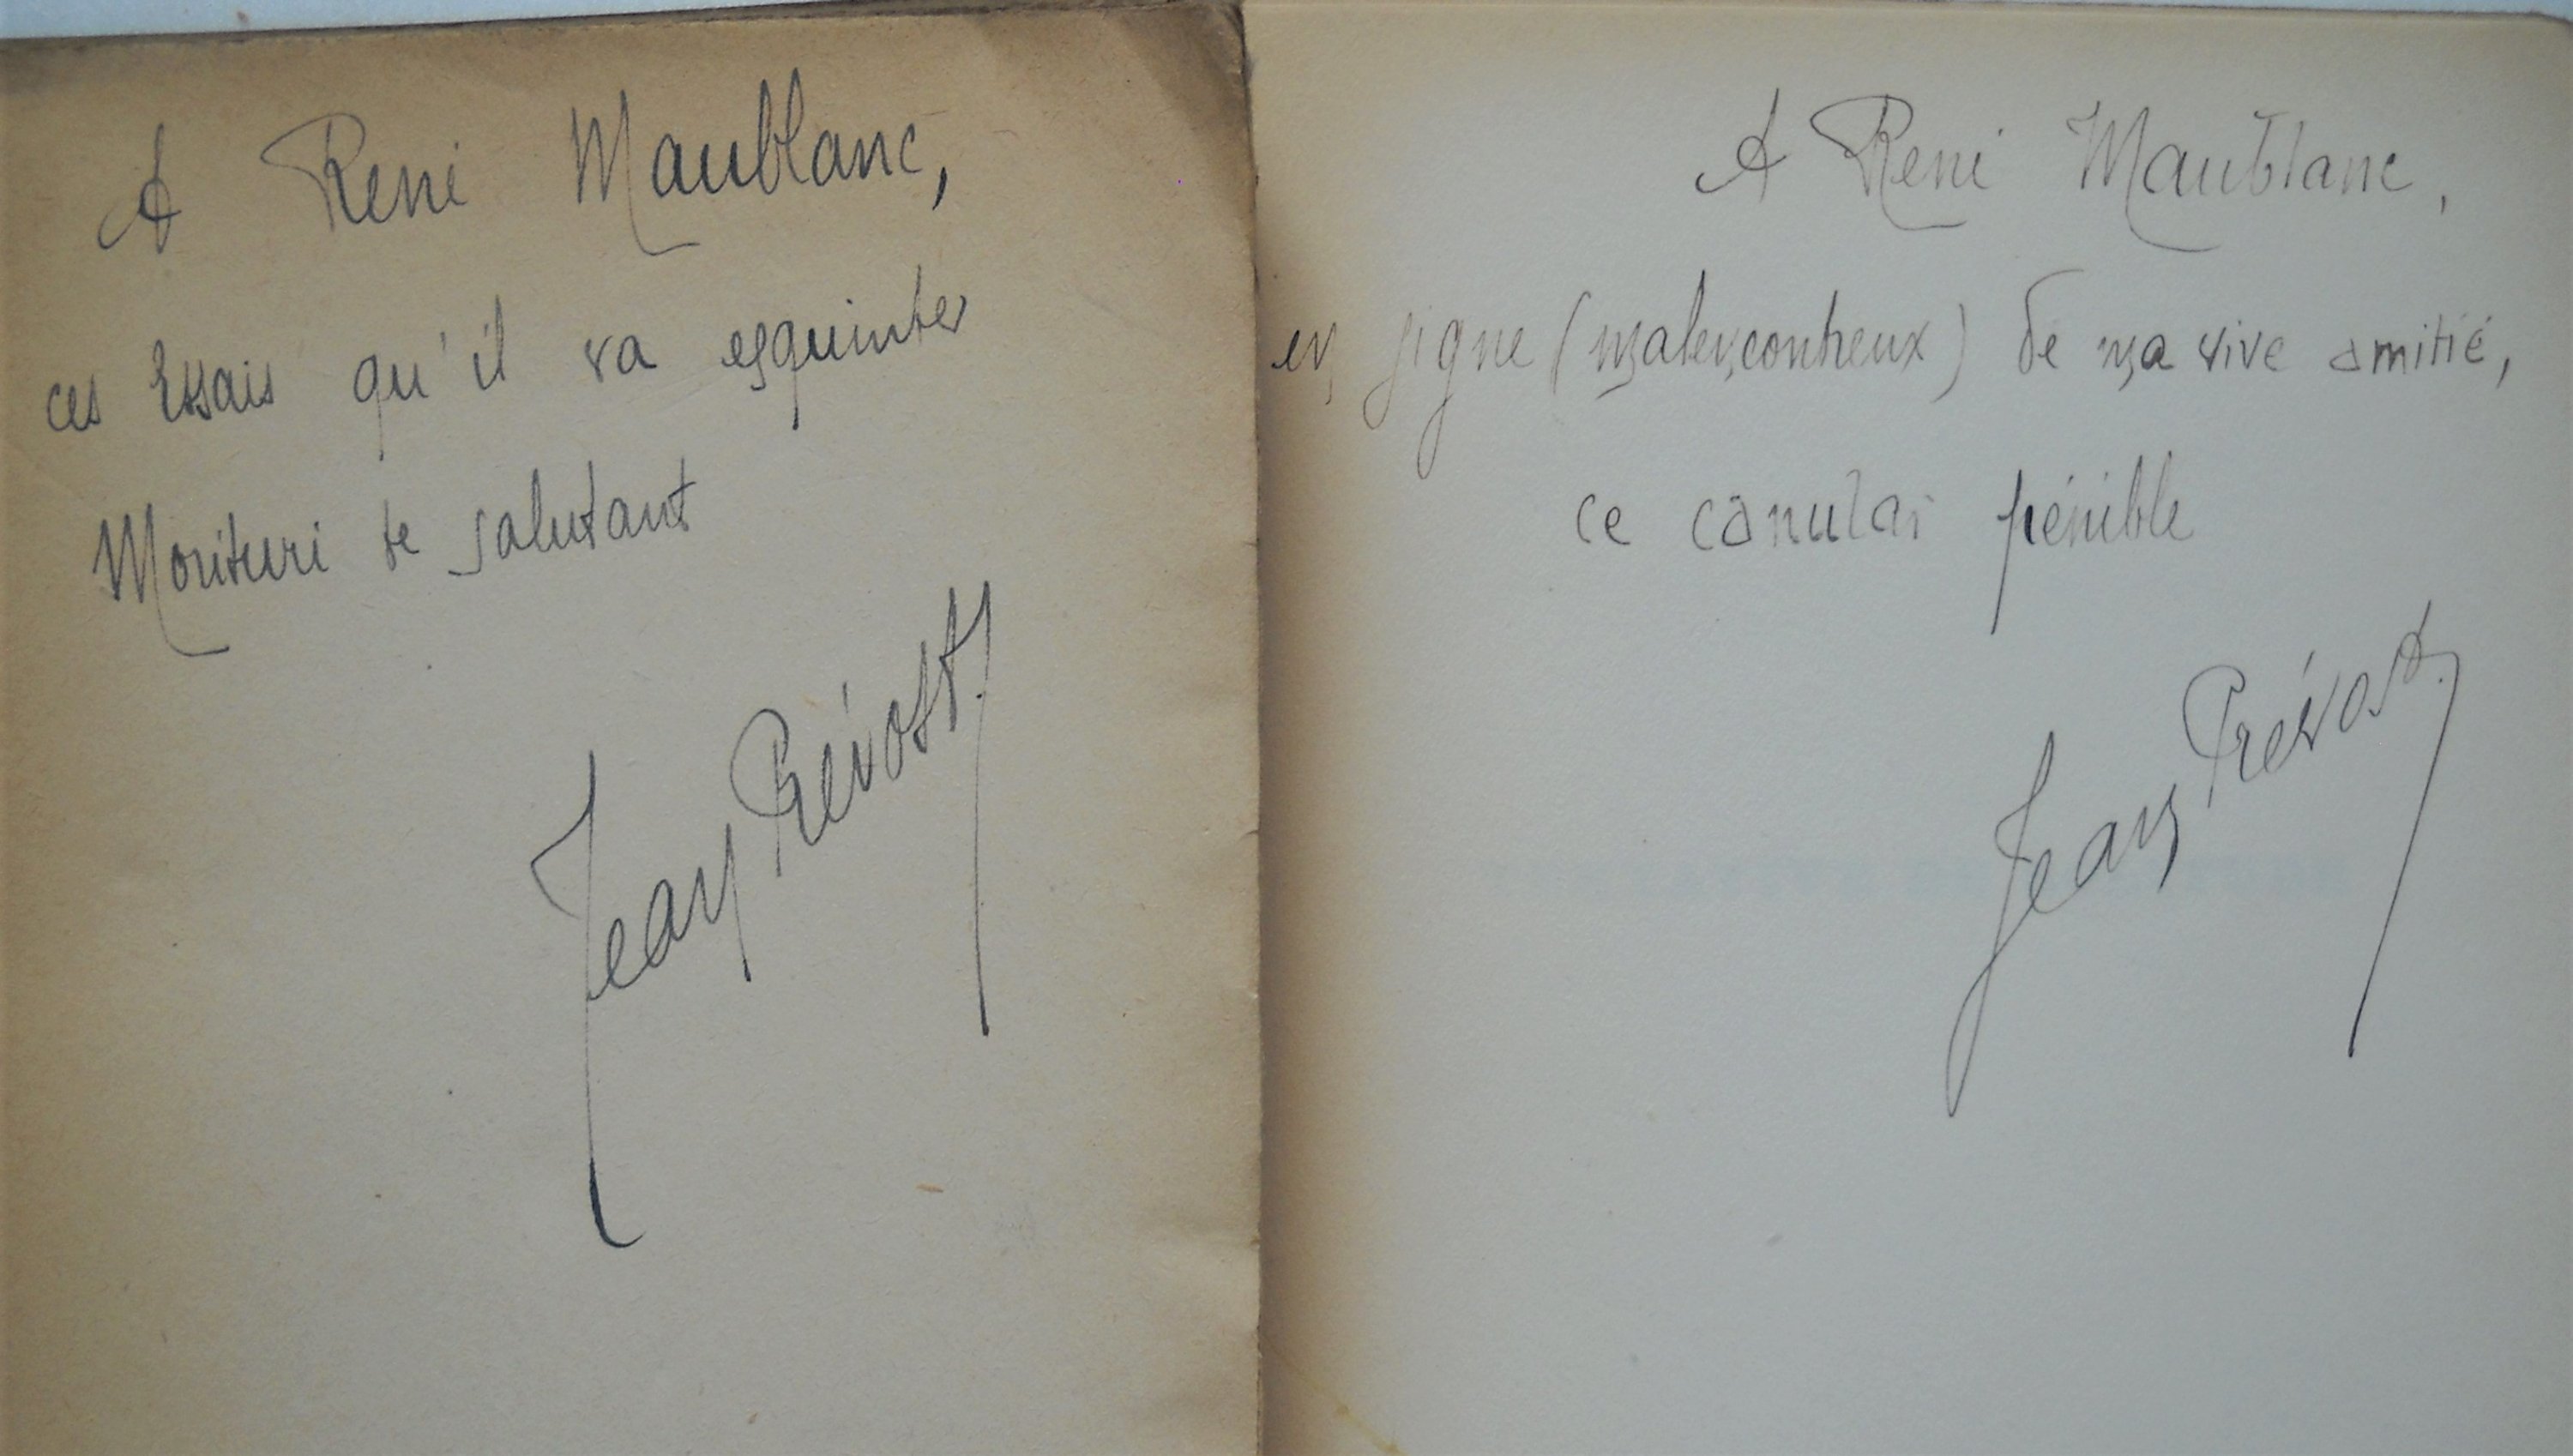 A René Maublanc,
ces Essais qu'il va esquinter
Morituri te salutant
Jean Prévost.
A René Maublanc,
en signe (malenconheux) de ma vive amitié,
ce canular pénible
Jean Prévost.